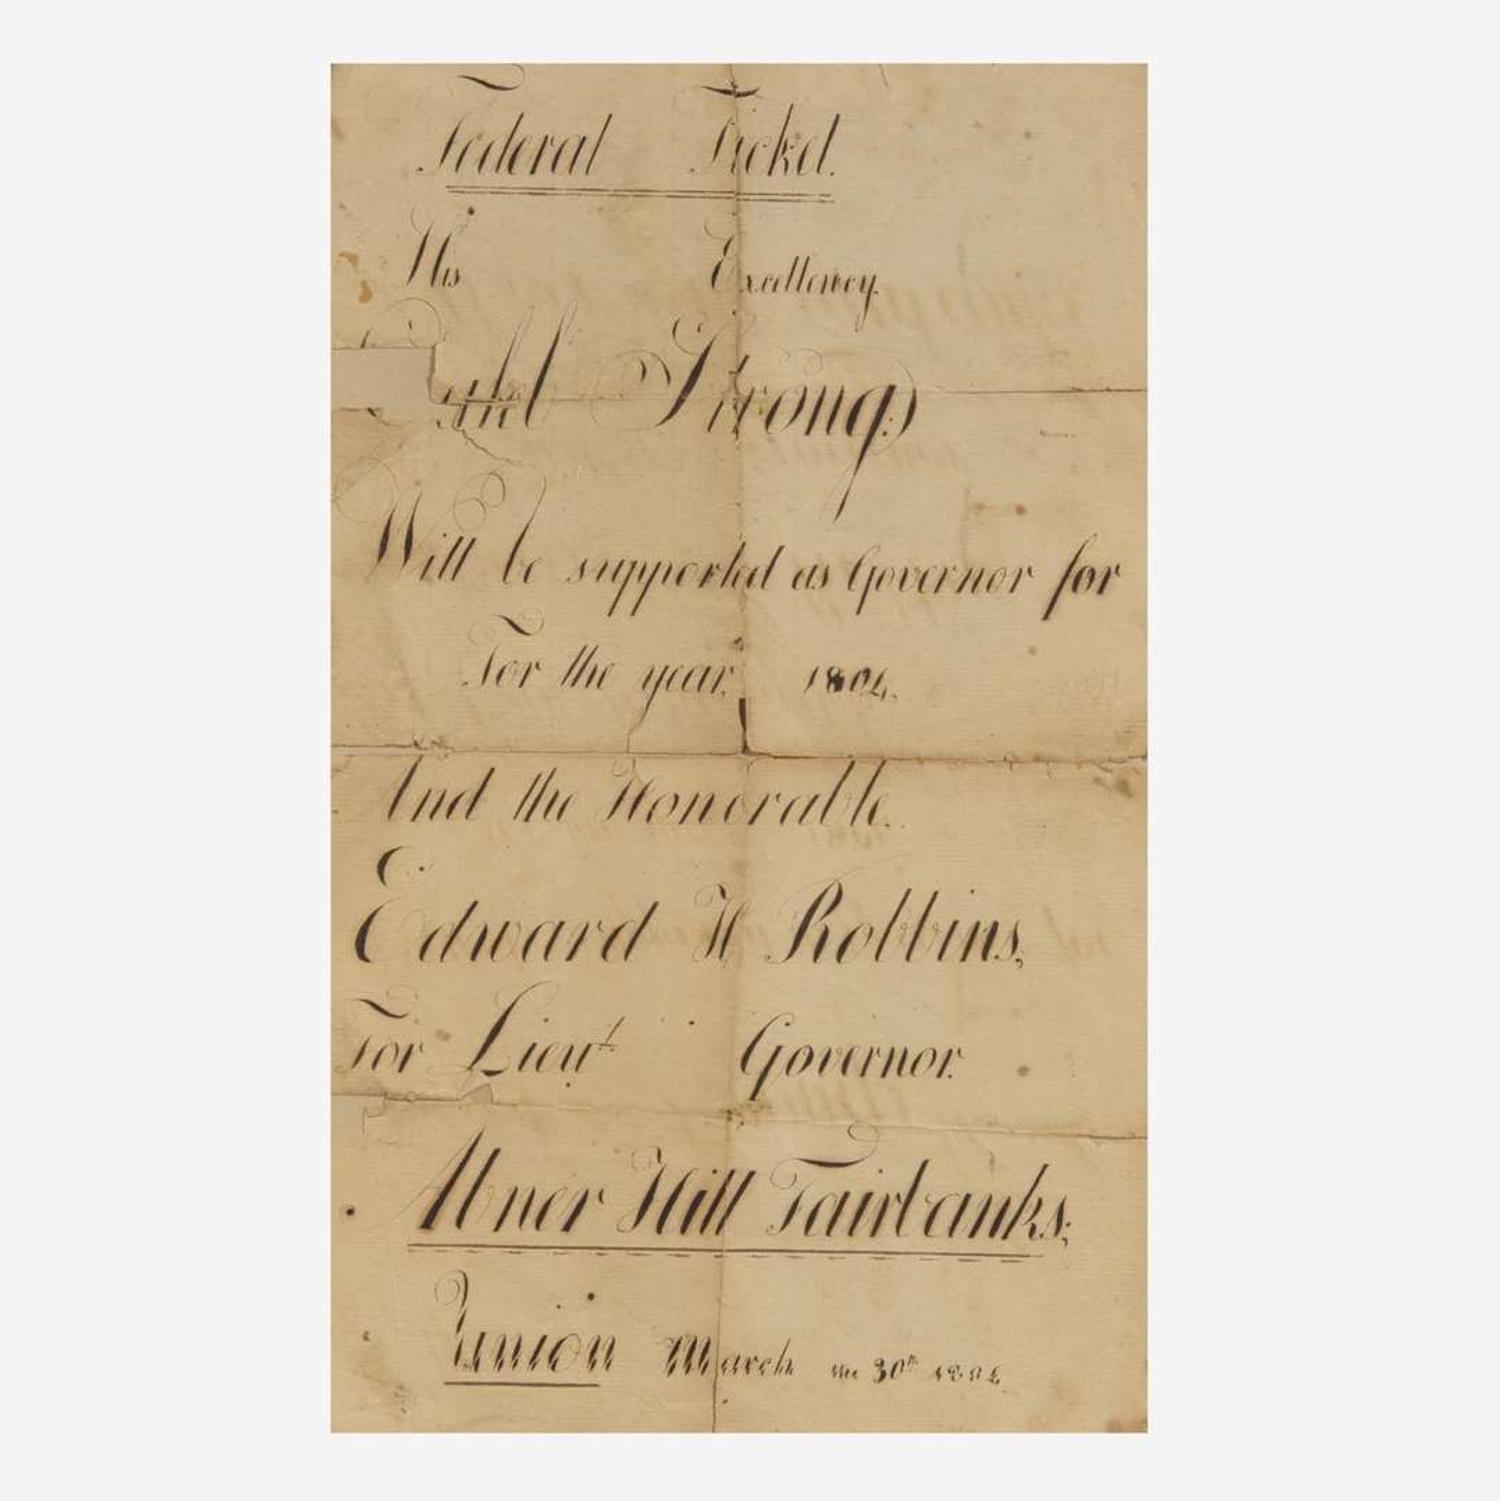 Federal Ticket.
His Excellency
Strong
Will be supported as Governor for
For the year. 1804.
And the Honorable.
Edward H Robbins,
For Lieut. Governor.
Abner Hill Fairbanks;
Union March the 30th 1804